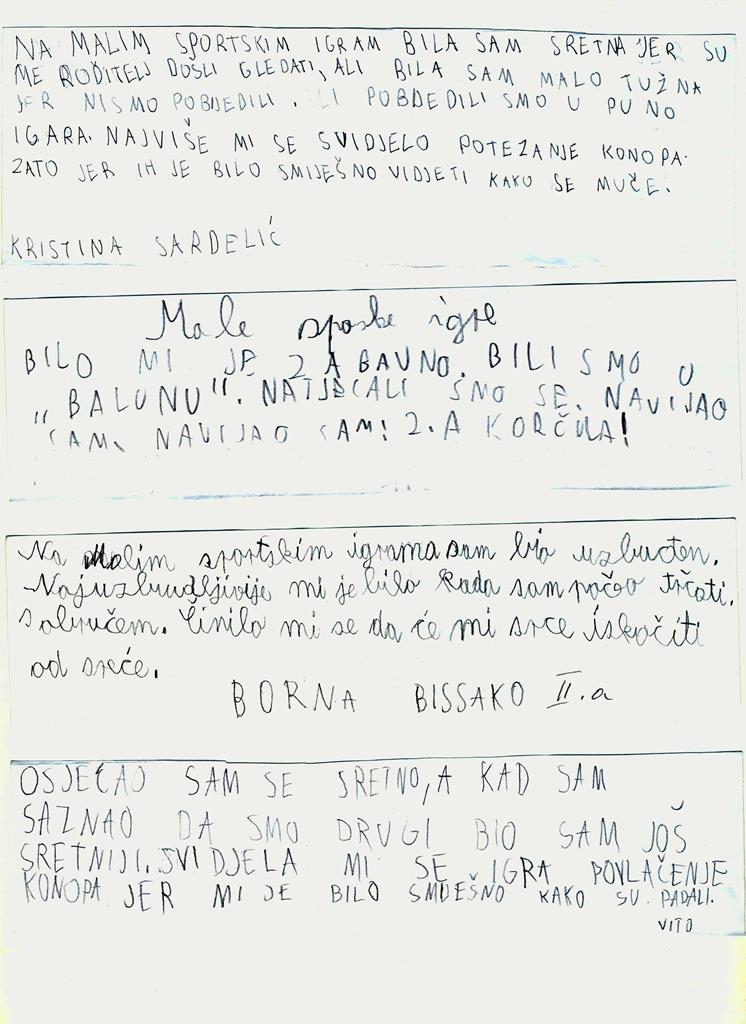 NA MALIM SPORTSKIM IGRAM BILA SAM SRETNA JER SU
ME RODITELJ DOŠLI GLEDATI, ALI BILA SAM MALO TUŽNA
JER NISMO POBIJEDILI. ILI POBDEDILI SMO U PUNO
IGARA. NAJVIŠE MI SE SVIDJELO POTEZANJE KONOPA.
ZATO JER IH JE BILO SMIJEŠNO VIDJETI KAKO SE MUČE.
KRISTINA SARDELIĆ
Male sposke igre
BILO MI JE ZABAVNO. BILI SMO U
"BALUNU". NATJECALI SMO SE. NAVIJAO
SAM. NAVIJAO SAM! 2.A KORČULA!
Na Malim sportskim igrama sam bio uzbuđen.
Najuzbudljivije mi je bilo kada sam počeo trčati.
s obručem. Činilo mi se da će mi srce iskočiti
od sreće.
BORNA BISSAKO II.a
OSJEĆAO SAM SE SRETNO, A KAD SAM
SAZNAO DA SMO DRUGI BIO SAM JOŠ
SRETNIJI. SVIDJELA MI SE IGRA POVLAČENJE
KONOPA JER MI JE BILO SMIJEŠNO KAKO SU PADALI.
VITO